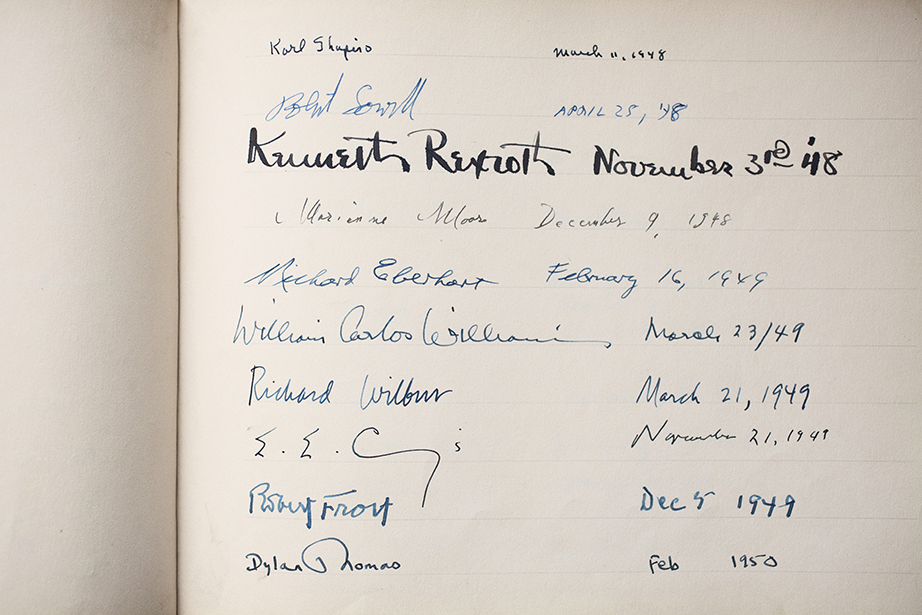 Karl Shapiro March 11, 1948
Robert Lowell APRIL 25, '48
Kenneth Rexroth November 3rd '48
Marianne Moore December 9, 1948
Richard Eberhart February 16, 1949
William Carlos Williams March 23/49
Richard Wilbur March 21, 1949
E. E. Cummings November 21, 1949
Robert Frost Dec 5 1949
Dylan Thomas Feb 1950